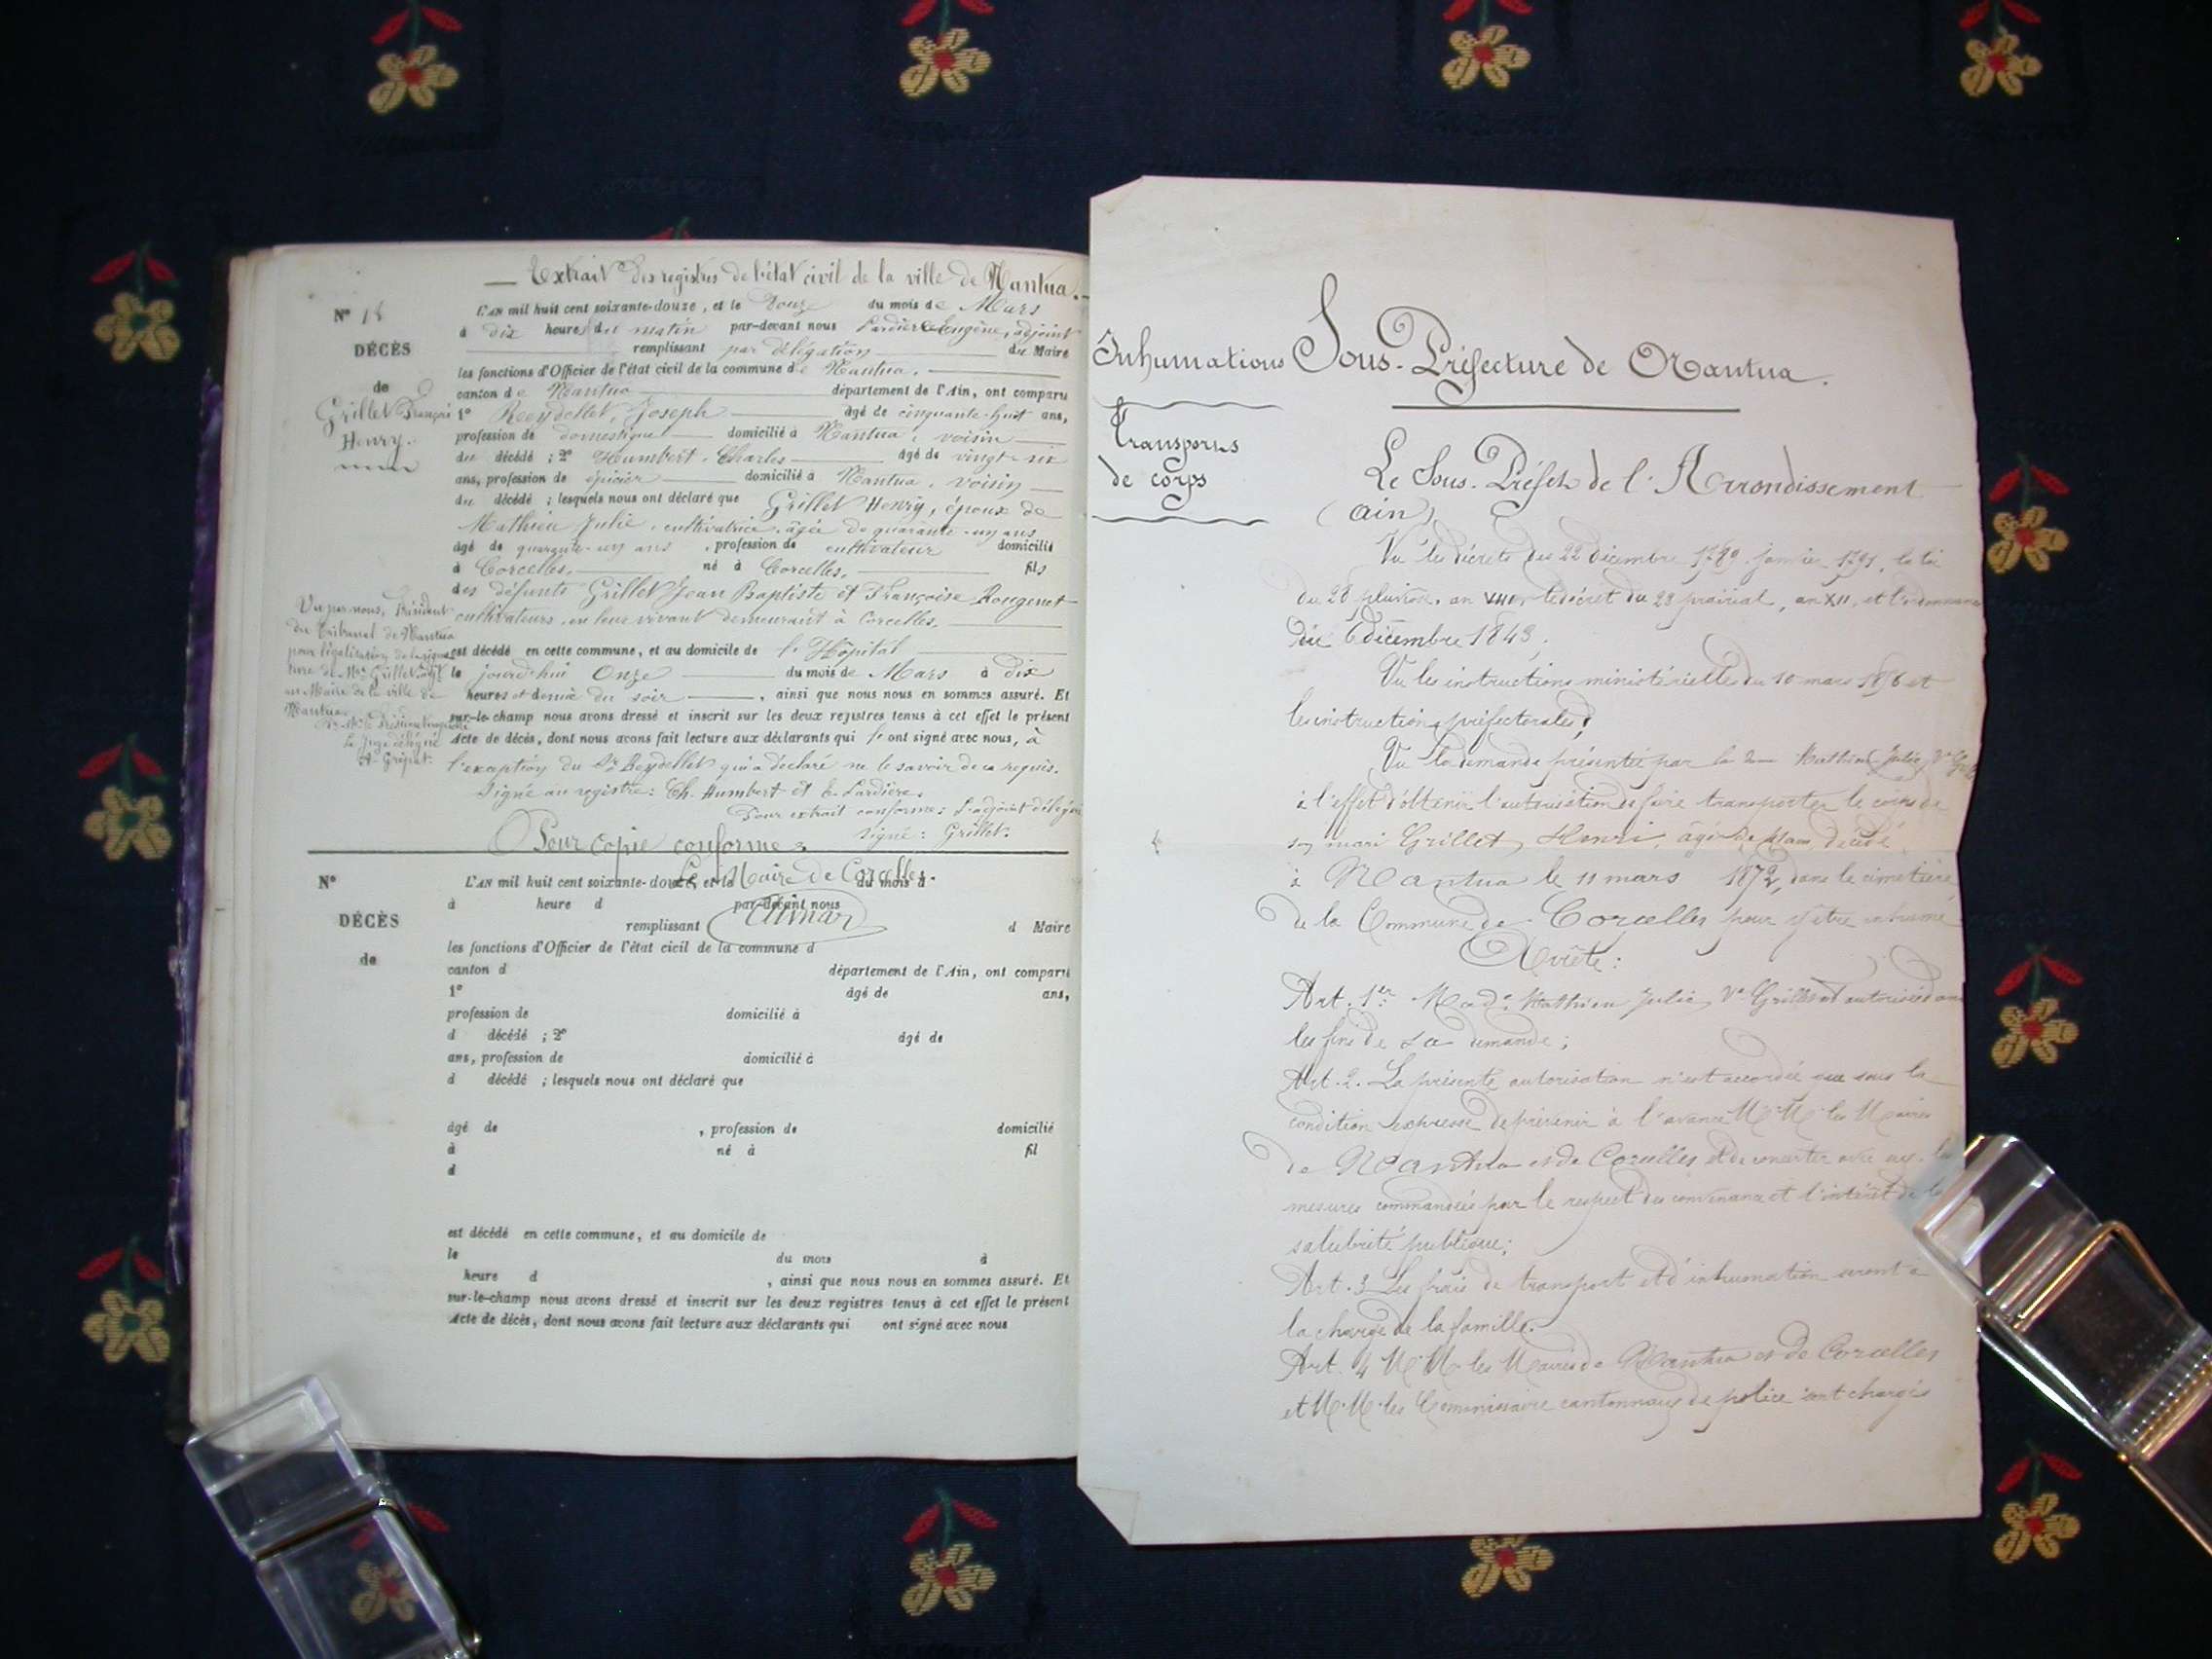 Extrait des registres de l'état civil de la ville de Nantua.
N° 18
DÉCÈS
de
Grillet François
Henry.
L'AN mil huit cent soixante-douze, et le Douze du mois de Mars
à dix heures du matin par-devant nous Lardière Eugène, adjoint
remplissant par délégation du Maire
les fonctions d'Officier de l'état civil de la commune de Nantua.
canton de Nantua département de l'Ain, ont comparu
1° Reydellet, Joseph âgé de cinquante-huit ans,
profession de domestique domicilié à Nantua, voisin
du décédé ; 2° Humbert, Charles âgé de vingt-six
ans, profession de épicier domicilié à Nantua, voisin
du décédé ; lesquels nous ont déclaré que Grillet Henry, époux de
Mathieu Julie, cultivatrice, âgée de quarante-un ans
âgé de quarante-un ans, profession de cultivateur domicilié
à Corcelles, né à Corcelles, fils
des défunts Grillet Jean Baptiste et Françoise Rougenet
cultivateurs, en leur vivant demeurant à Corcelles,
est décédé en cette commune, et au domicile de l'Hôpital
le jourd'hui Onze du mois de Mars à dix
heures et demie du soir, ainsi que nous nous en sommes assuré. Et
sur-le-champ nous avons dressé et inscrit sur les deux registres tenus à cet effet le présent
Acte de décès, dont nous avons fait lecture aux déclarants qui l'ont signé avec nous, à
l'exception du Sr Reydellet qui a déclaré ne le savoir de ce requis.
Signé au registre : Ch. Humbert et E. Lardière.
Pour extrait conforme : L'adjoint délégué
signé : Grillet.
Vu par nous, Président
du Tribunal de Nantua
pour légalisation de la signa
ture de Mr Grillet adjt
au Maire de la ville de
Nantua.
Le Juge délégué
Pour copie conforme :
Le Maire de Corcelles.
N°
DÉCÈS
de
L'AN mil huit cent soixante-douze, et le du mois d
à heure d par-devant nous
remplissant d Maire
les fonctions d'Officier de l'état civil de la commune d
canton d département de l'Ain, ont comparu
1° âgé de ans,
profession de domicilié à
d décédé ; 2° âgé de
ans, profession de domicilié à
d décédé ; lesquels nous ont déclaré que
âgé de , profession de domicilié
à né à fil
d
est décédé en cette commune, et au domicile de
le du mois à
heure d , ainsi que nous nous en sommes assuré. Et
sur-le-champ nous avons dressé et inscrit sur les deux registres tenus à cet effet le présent
Acte de décès, dont nous avons fait lecture aux déclarants qui ont signé avec nous
Inhumations
Transports
de corps
Sous-Préfecture de Nantua.
Le Sous-Préfet de l'Arrondissement
(ain)
Vu les décrets des 22 décembre 1789 janvier 1791, la loi
du 28 pluviôse, an VIII, le décret du 23 prairial, an XII, et l'ordonnance
du 6 décembre 1843 ;
Vu les instructions ministérielles du 10 mars 1856 et
les instructions préfectorales ;
Vu la demande présentée par la Mathieu Julie Ve
à l'effet d'obtenir l'autorisation de faire transporter le corps de
son mari Grillet, Henri, âgé de 41 ans, décédé
à Nantua le 11 mars 1872, dans le cimetière
de la Commune de Corcelles pour y être inhumé
Arrête :
Art. 1er. Made Mathieu Julie, Ve Grillet est autorisée
les fins de sa demande ;
Art. 2. La présente autorisation n'est accordée que sous la
condition expresse de prévenir à l'avance M.M. les Maires
de Nantua et de Corcelles et de concerter avec eux les
mesures commandées par le respect des convenances et l'intérêt de la
salubrité publique ;
Art. 3 Les frais de transport et d'inhumation seront à
la charge de la famille.
Art. 4 M.M. les Maires de Nantua et de Corcelles
et M.M. les Commissaire cantonnaux de police sont chargés